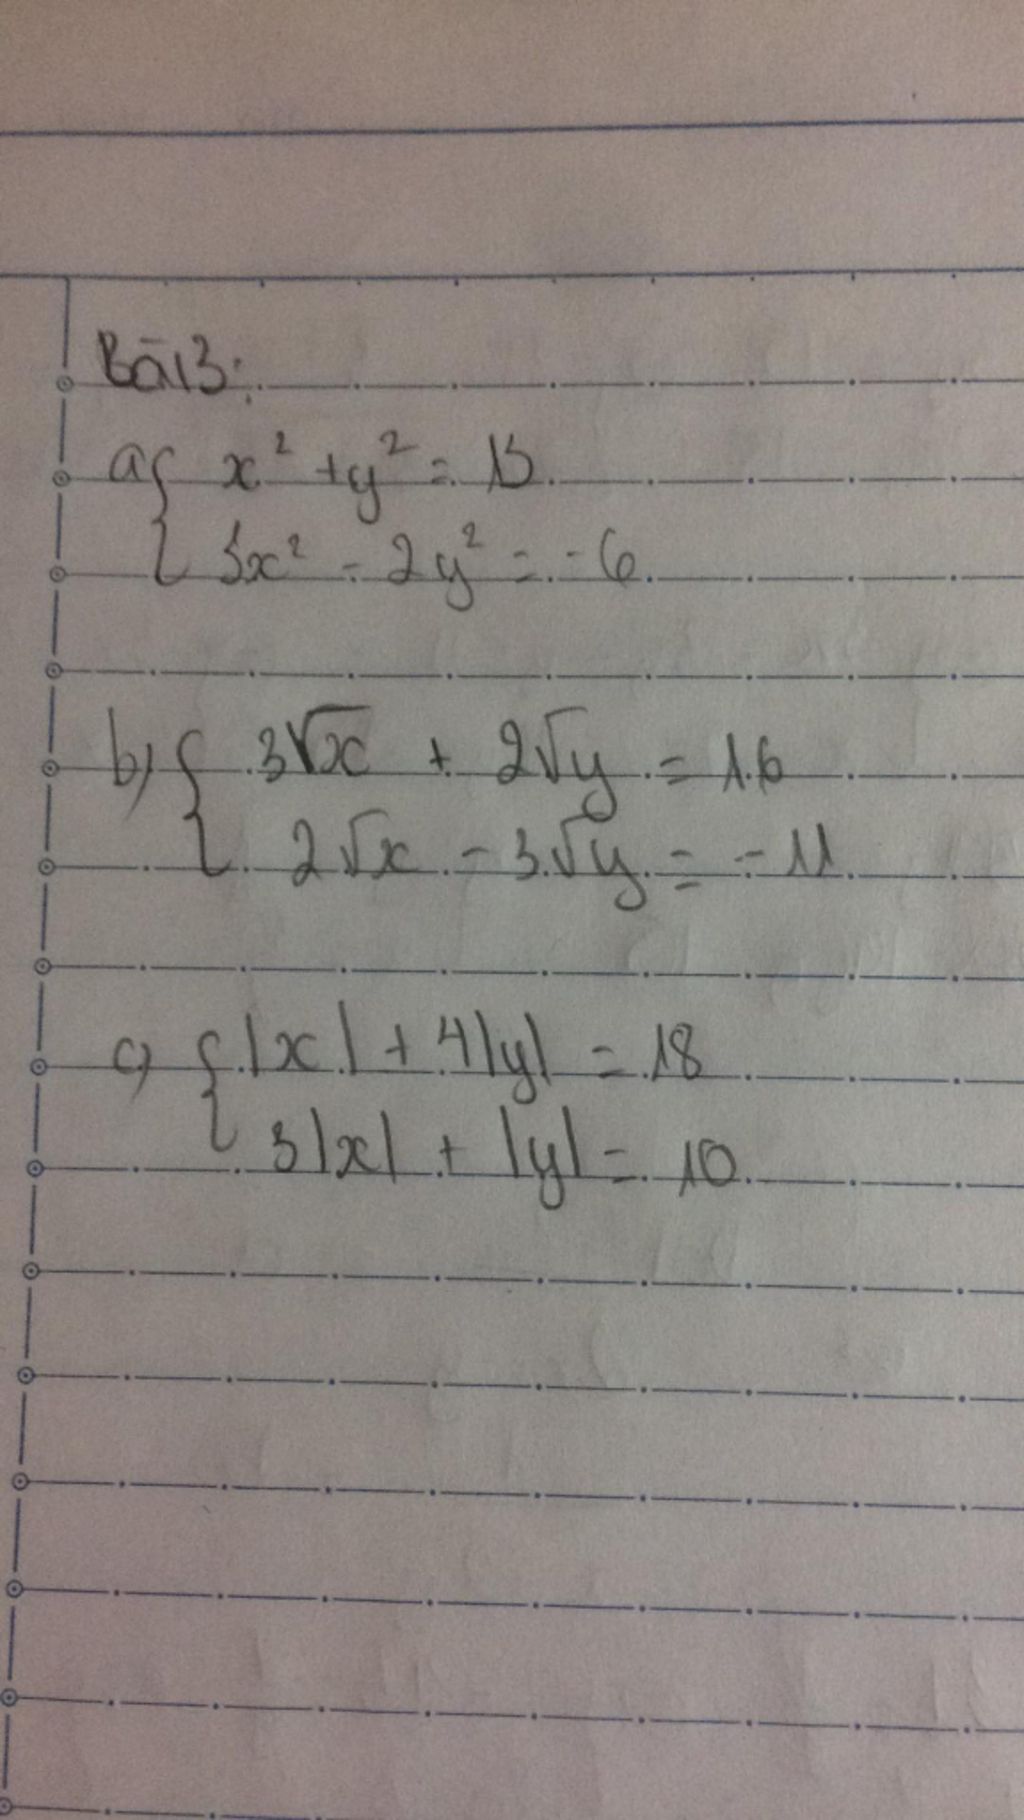 Bài 3:
a, { x² + y² = 13
3x² - 2y² = -6
b, { 3√x + 2√y = 16
2√x - 3√y = -11
c, { |x| + 4|y| = 18
3|x| + |y| = 10